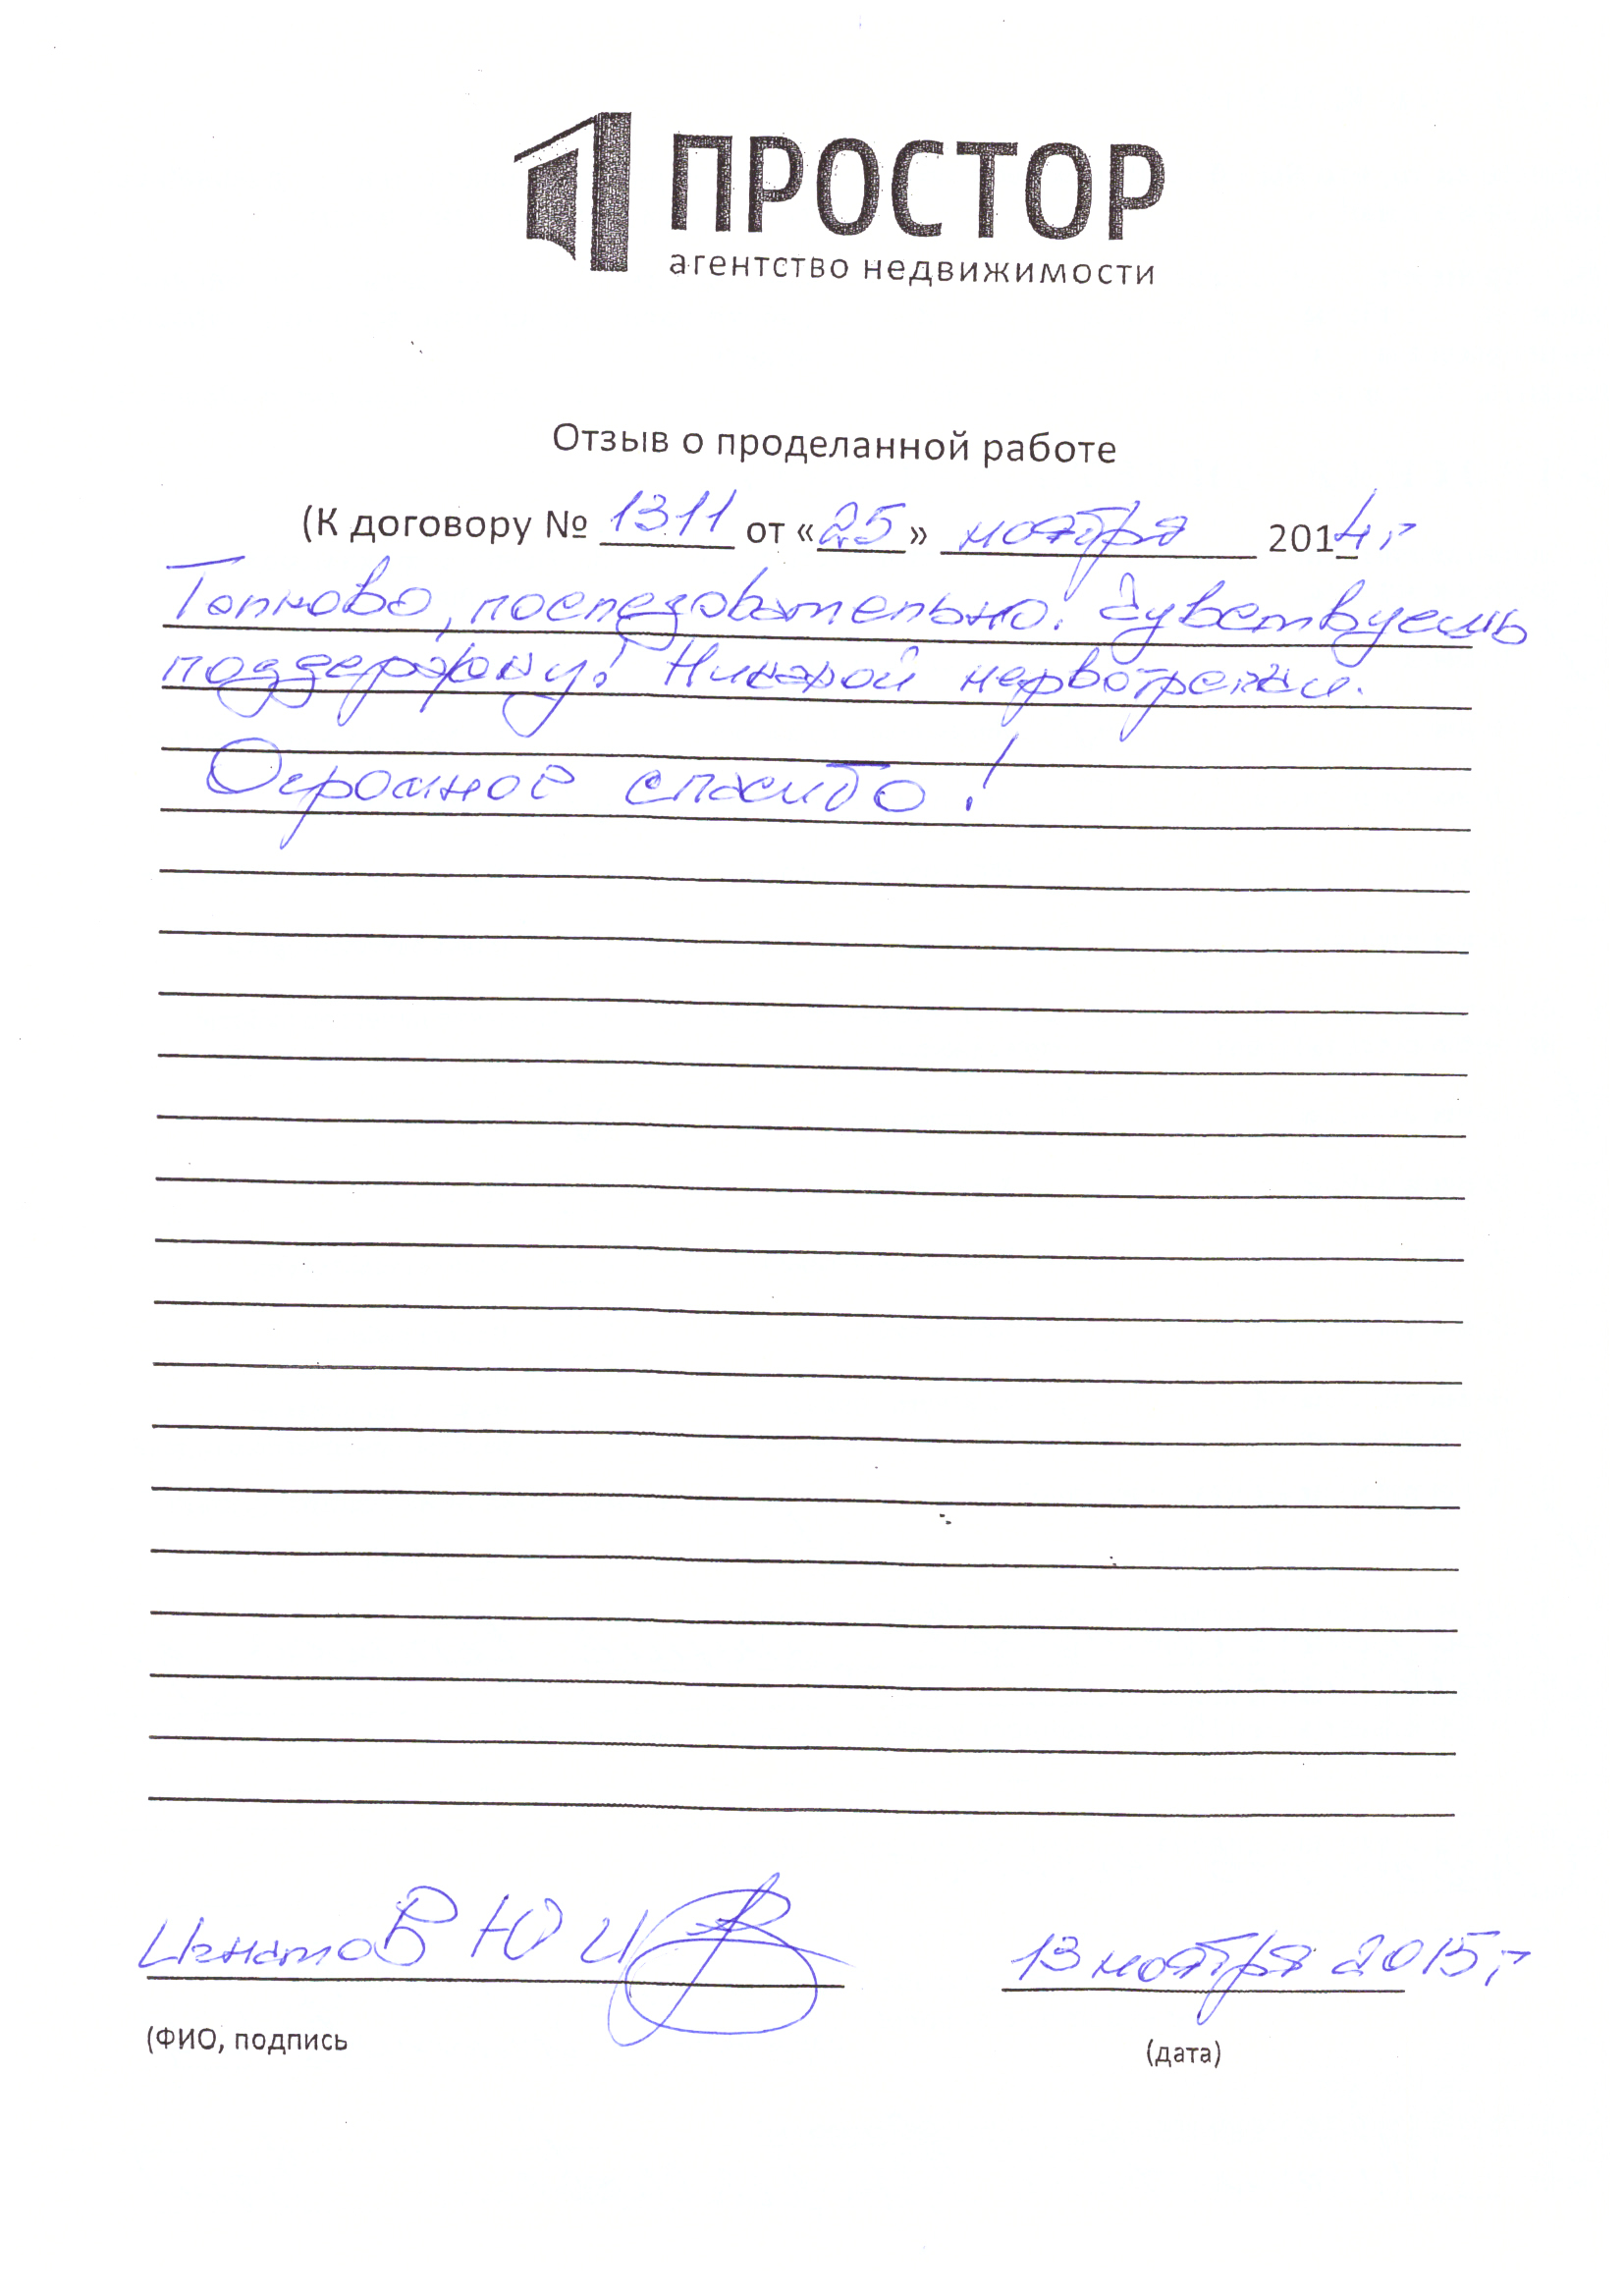 ПРОСТОР
агентство недвижимости
Отзыв о проделанной работе
(К договору № 1311 от «25» ноября 2014 г
Толково, последовательно. Чувствуешь
поддержку! Никакой нервотрепки.
Огромное спасибо!
13 ноября 2015 г
(ФИО, подпись
(дата)